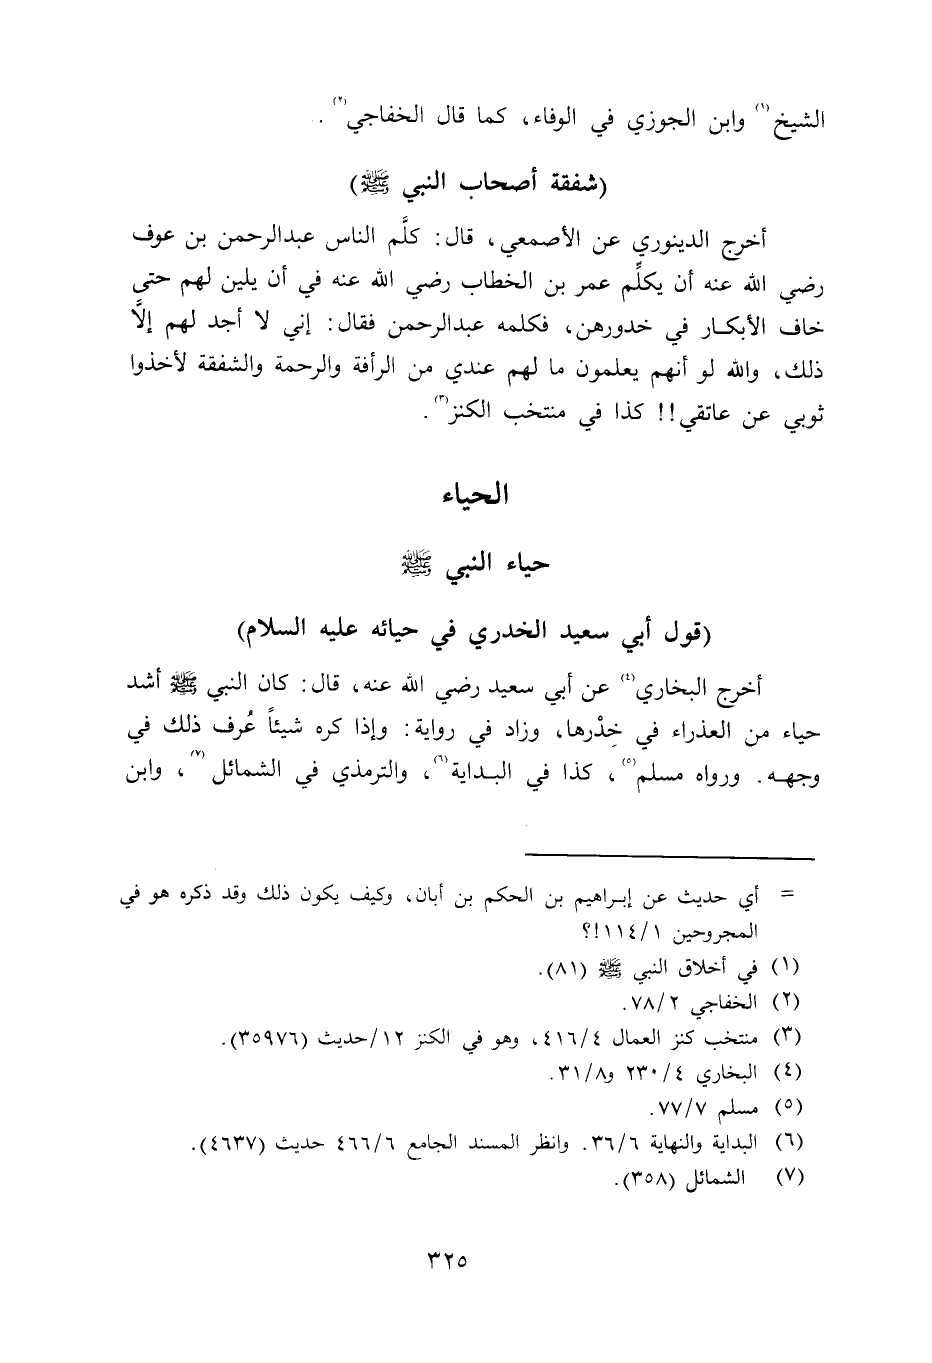 الشيخ(١) وابن الجوزي في الوفاء، كما قال الخفاجي(٢).
(شفقة أصحاب النبي ﷺ)
أخرج الدينوري عن الأصمعي، قال: كلَّم الناس عبدالرحمن بن عوف
رضي الله عنه أن يكلِّم عمر بن الخطاب رضي الله عنه في أن يلين لهم حتى
خاف الأبكار في خدورهن، فكلمه عبدالرحمن فقال: إني لا أجد لهم إلاَّ
ذلك، والله لو أنهم يعلمون ما لهم عندي من الرأفة والرحمة والشفقة لأخذوا
ثوبي عن عاتقي!! كذا في منتخب الكنز(٣).
الحياء
حياء النبي ﷺ
(قول أبي سعيد الخدري في حيائه عليه السلام)
أخرج البخاري(٤) عن أبي سعيد رضي الله عنه، قال: كان النبي ﷺ أشد
حياء من العذراء في خِدْرها، وزاد في رواية: وإذا كره شيئاً عُرف ذلك في
وجهه. ورواه مسلم(٥)، كذا في البداية(٦)، والترمذي في الشمائل(٧)، وابن
= أي حديث عن إبراهيم بن الحكم بن أبان، وكيف يكون ذلك وقد ذكره هو في
المجروحين ١١٤/١!؟
(١) في أخلاق النبي ﷺ (٨١).
(٢) الخفاجي ٧٨/٢.
(٣) منتخب كنز العمال ٤١٦/٤، وهو في الكنز ١٢/حديث (٣٥٩٧٦).
(٤) البخاري ٢٣٠/٤ و٣١/٨.
(٥) مسلم ٧٧/٧.
(٦) البداية والنهاية ٣٦/٦. وانظر المسند الجامع ٤٦٦/٦ حديث (٤٦٣٧).
(٧) الشمائل (٣٥٨).
٣٢٥